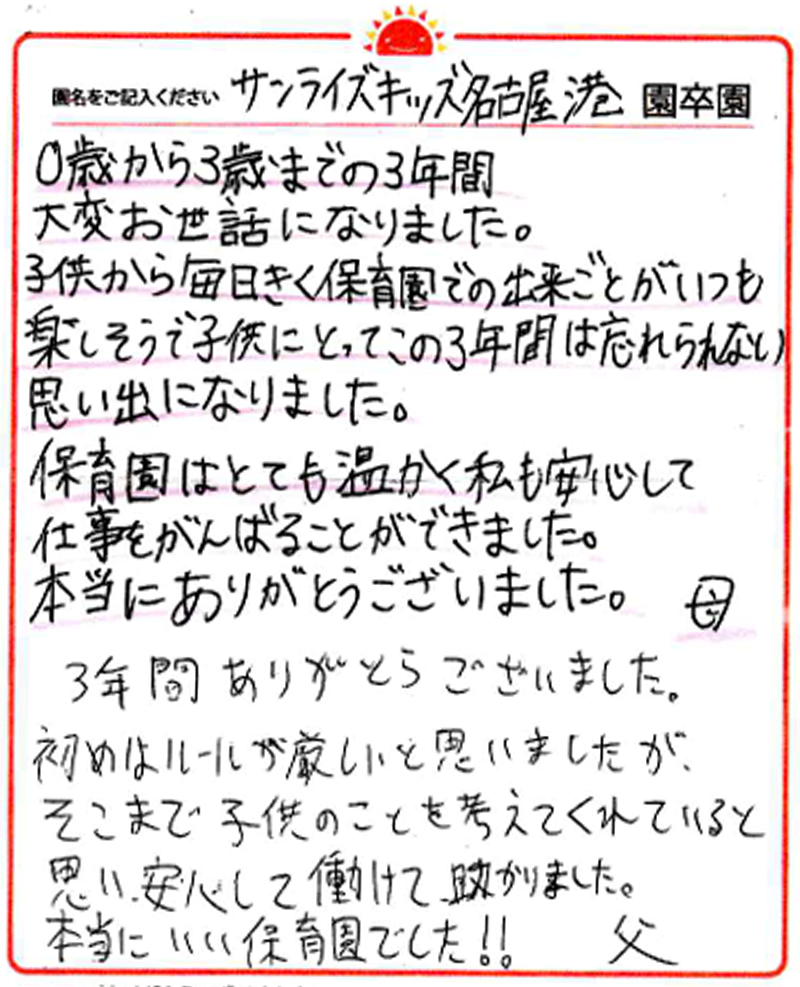 園名をご記入ください サンライズキッズ名古屋港 園卒園
0歳から3歳までの3年間
大変お世話になりました。
子供から毎日きく保育園での出来ごとがいつも
楽しそうで子供にとってこの3年間は忘れられない
思い出になりました。
保育園はとても温かく私も安心して
仕事をがんばることができました。
本当にありがとうございました。 母
3年間ありがとうございました。
初めはルールが厳しいと思いましたが、
そこまで子供のことを考えてくれていると
思い、安心して働けて、助かりました。
本当にいい保育園でした!! 父